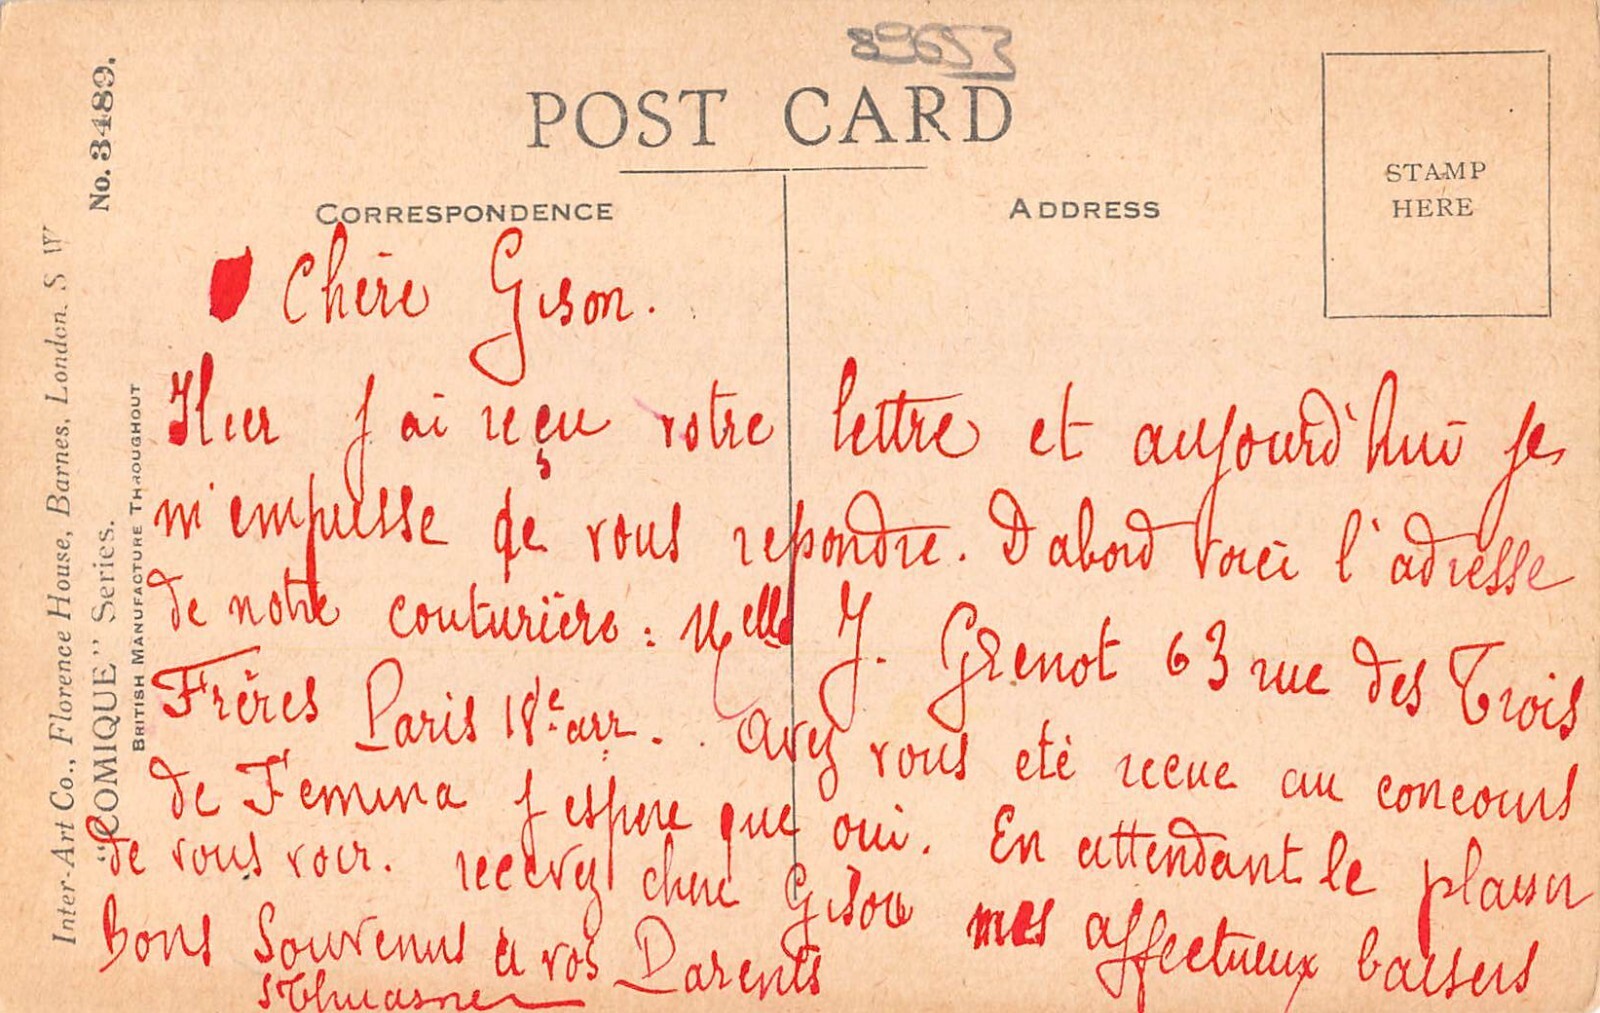 89653
POST CARD
CORRESPONDENCE
ADDRESS
STAMP
HERE
No. 3489.
Inter-Art Co., Florence House, Barnes, London. S W
"COMIQUE" Series.
BRITISH MANUFACTURE THROUGHOUT
Chère Gison.
Hier j'ai reçu votre lettre et aujourd'hui je
m'empresse de vous repondre. D'abord voici l'adresse
de notre couturière : Melle J. Grenot 63 rue des Trois
Frères Paris 18e arr. Avez vous eté recue au concours
de Femina j espere que oui. En attendant le plaisir
de vous voir. recevez chere Gison mes affectueux baisers
Bons Souvenirs à vos Parents